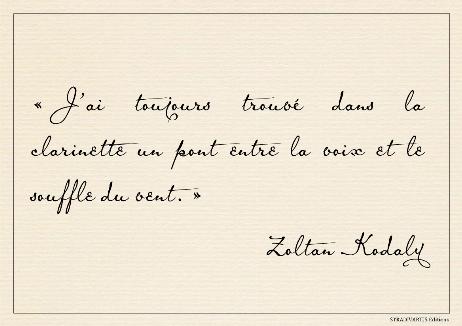 « J'ai toujours trouvé dans la
clarinette un pont entre la voix et le
souffle du vent. »
Zoltan Kodaly
STRADIVARIUS Editions